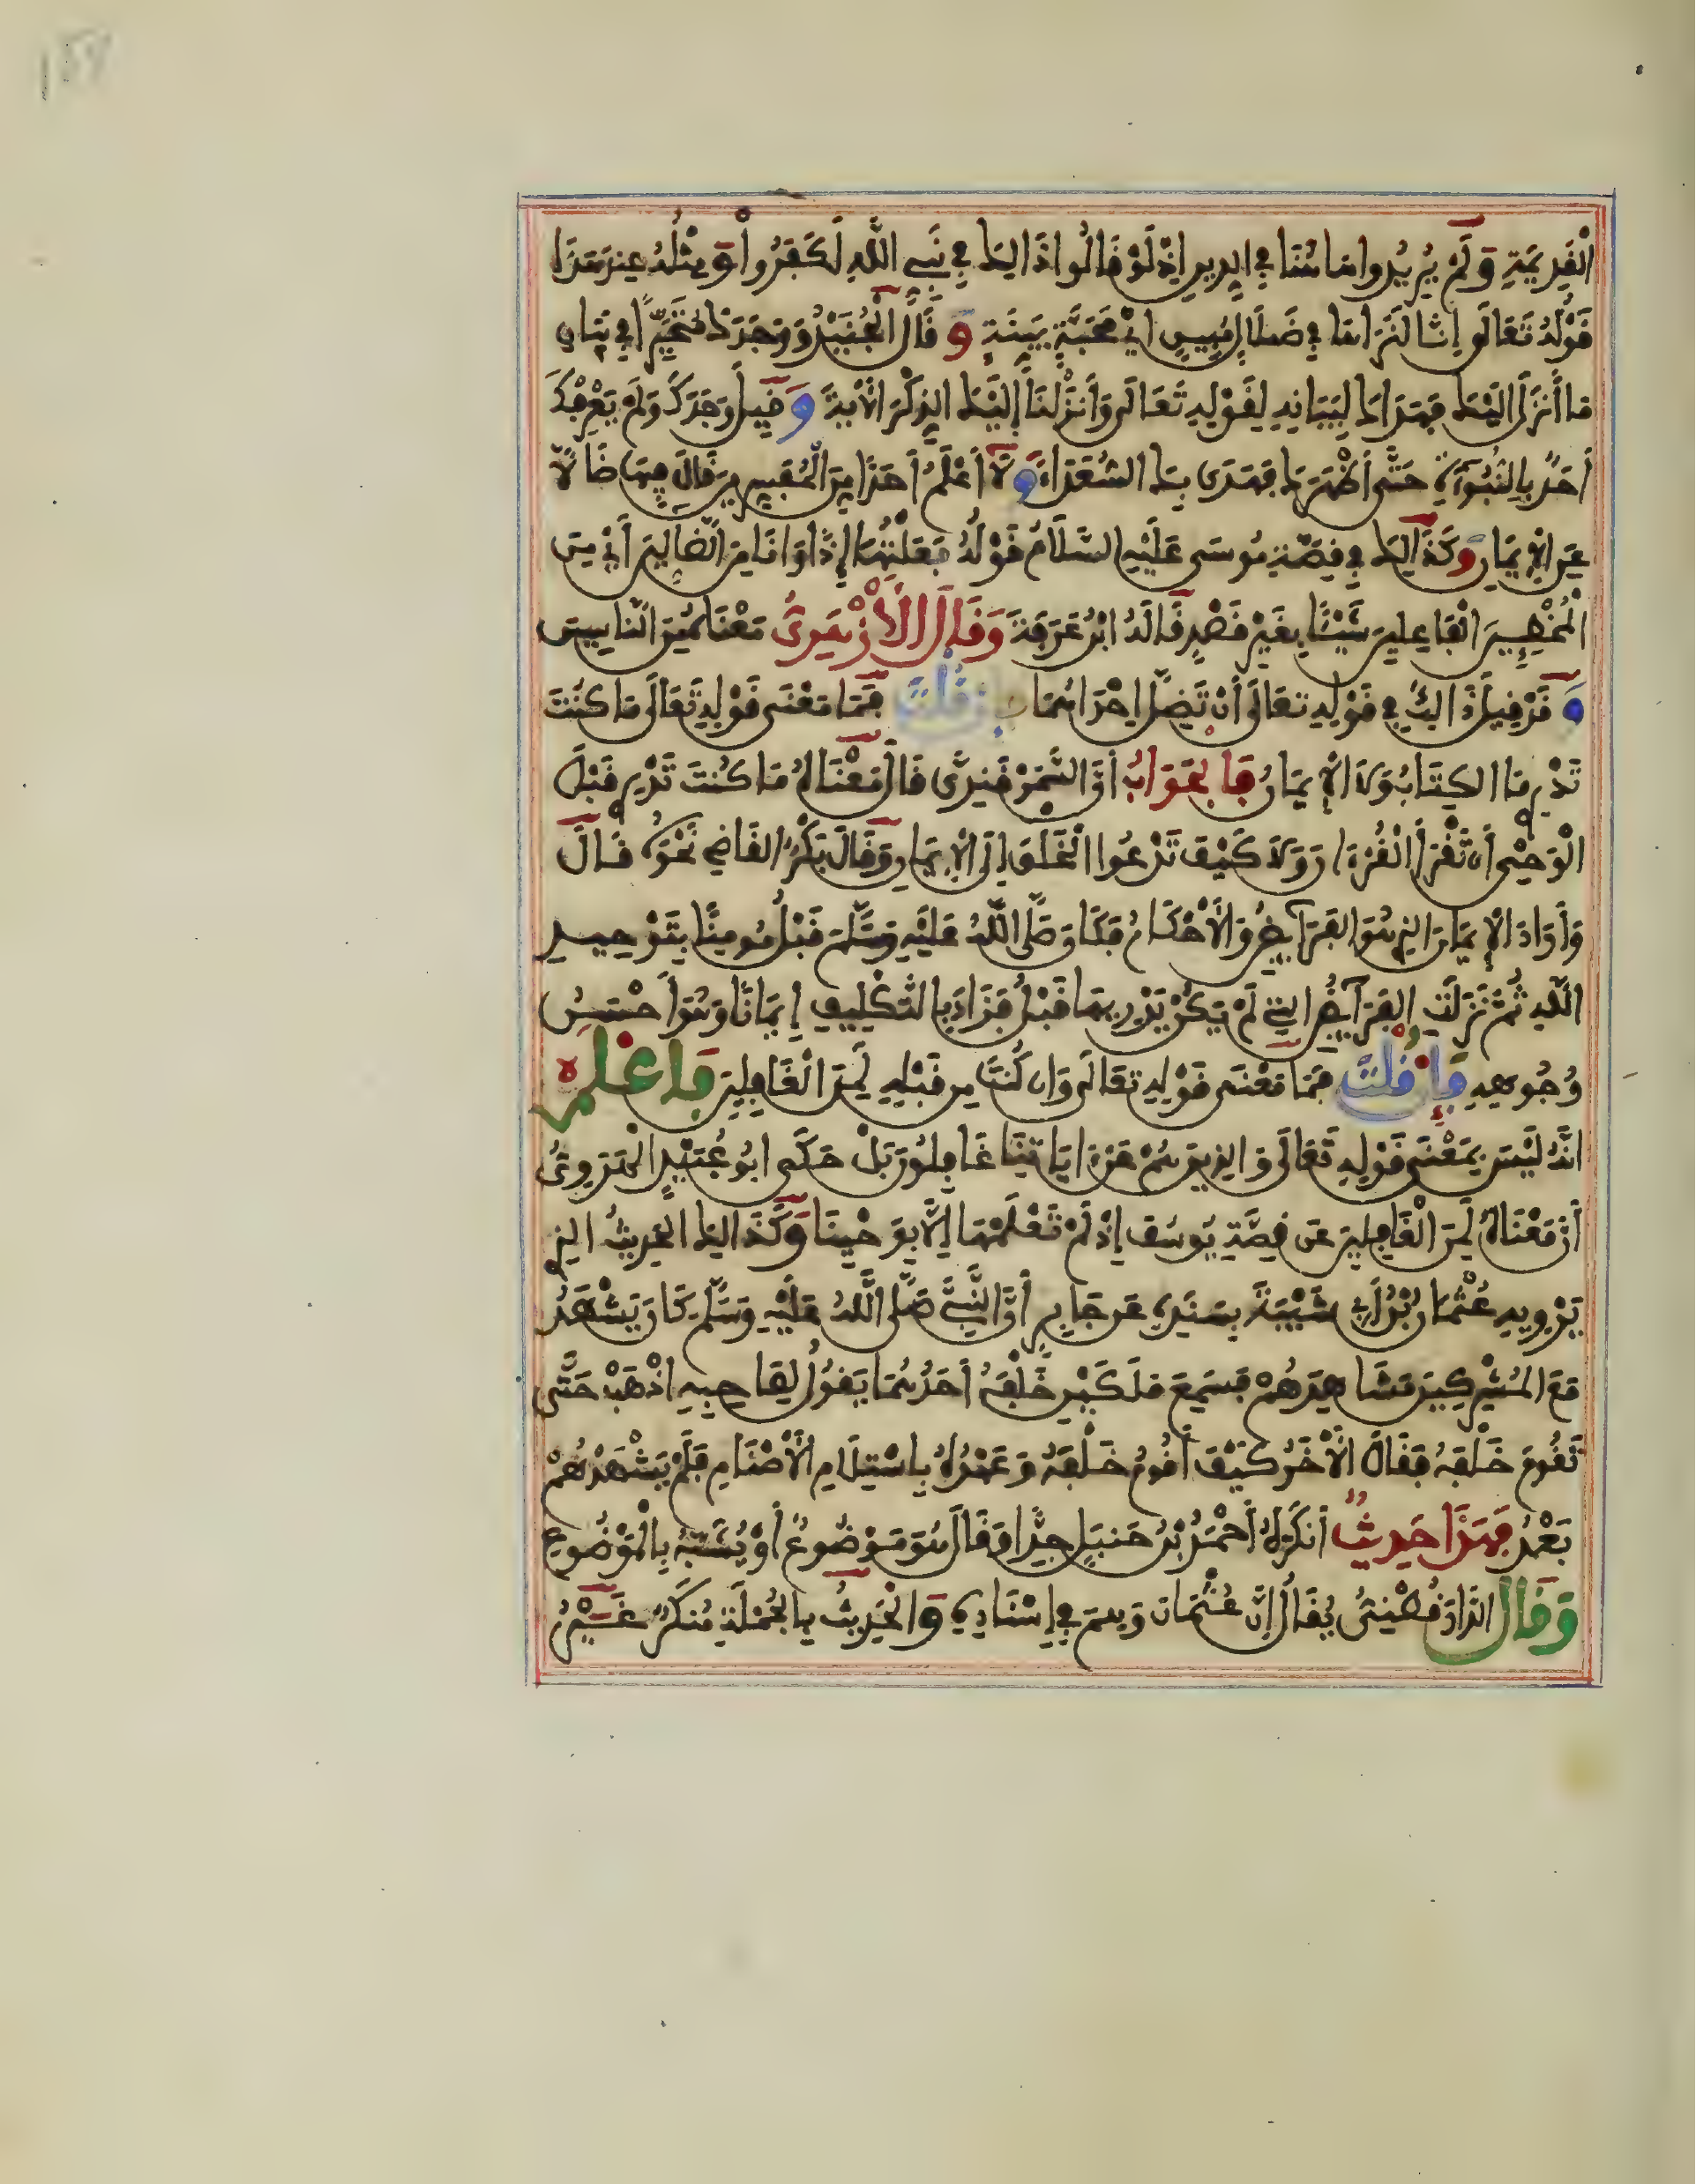 الْقَدِيمَةِ وَلَمْ يُرِيدُوا هَاهُنَا فِي الدِّينِ إِذْ لَوْ قَالُوا ذَالِكَ فِي نَبِيِّ اللَّهِ لَكَفَرُوا وَمِثْلُهُ عِنْدَ هَذَا
قَوْلُهُ تَعَالَى إِنَّا لَنَرَاهَا فِي ضَلَالٍ مُبِينٍ أَيْ مَحَبَّةٍ بَيِّنَةٍ وَقَالَ الْجُنَيْدُ وَوَجَدَكَ مُتَحَيِّرًا فِي بَيَانِ
مَا أُنْزِلَ إِلَيْكَ فَهَدَاكَ لِبَيَانِهِ لِقَوْلِهِ تَعَالَى وَأَنْزَلْنَا إِلَيْكَ الذِّكْرَ الْآيَةَ وَقِيلَ وَجَدَكَ وَلَمْ يَعْرِفْكَ
أَحَدٌ بِالنُّبُوَّةِ حَتَّى أَظْهَرَكَ فَهَدَى بِكَ السُّعَدَاءَ وَلَا أَعْلَمُ أَحَدًا مِنَ الْمُفَسِّرِينَ قَالَ فِيهَا ضَالًّا
عَنِ الْإِيمَانِ وَكَذَالِكَ فِي قِصَّةِ مُوسَى عَلَيْهِ السَّلَامُ قَوْلُهُ فَعَلْتُهَا إِذًا وَأَنَا مِنَ الضَّالِّينَ أَيْ مِنَ
الْمُخْطِئِينَ الْفَاعِلِينَ شَيْئًا بِغَيْرِ قَصْدٍ قَالَهُ ابْنُ عَرَفَةَ وَقَالَ الْأَزْهَرِيُّ مَعْنَاهُ مِنَ النَّاسِينَ
وَقَدْ قِيلَ ذَالِكَ فِي قَوْلِهِ تَعَالَى أَنْ تَضِلَّ إِحْدَاهُمَا فَإِنْ قُلْتَ فَمَا مَعْنَى قَوْلِهِ تَعَالَى مَا كُنْتَ
تَدْرِي مَا الْكِتَابُ وَلَا الْإِيمَانُ فَالْجَوَابُ أَنَّ السَّمَرْقَنْدِيَّ قَالَ مَعْنَاهُ مَا كُنْتَ تَدْرِي قَبْلَ
الْوَحْيِ أَنْ تَقْرَأَ الْقُرْءَانَ وَلَا كَيْفَ تَدْعُوا الْخَلْقَ إِلَى الْإِيمَانِ وَقَالَ بَكْرٌ الْقَاضِي نَحْوَهُ قَالَ
وَلَا الْإِيمَانَ الَّذِي هُوَ الْفَرَائِضُ وَالْأَحْكَامُ فَكَانَ صَلَّى اللَّهُ عَلَيْهِ وَسَلَّمَ قَبْلُ مُومِنًا بِتَوْحِيدِ
اللَّهِ ثُمَّ نَزَلَتِ الْفَرَائِضُ الَّتِي لَمْ يَكُنْ يَدْرِيهَا قَبْلُ فَزَادَ بِالتَّكْلِيفِ إِيمَانًا وَهُوَ أَحْسَنُ
وُجُوهِهِ فَإِنْ قُلْتَ فَمَا مَعْنَى قَوْلِهِ تَعَالَى وَإِنْ كُنْتَ مِنْ قَبْلِهِ لَمِنَ الْغَافِلِينَ فَاعْلَمْ
أَنَّهُ لَيْسَ بِمَعْنَى قَوْلِهِ تَعَالَى وَالَّذِينَ هُمْ عَنْ ءَايَاتِنَا غَافِلُونَ بَلْ حَكَى أَبُو عُبَيْدٍ الْهَرَوِيُّ
أَنَّ مَعْنَاهُ لَمِنَ الْغَافِلِينَ عَنْ قِصَّةِ يُوسُفَ إِذْ لَمْ تَعْلَمْهَا إِلَّا بِوَحْيِنَا وَكَذَالِكَ الْحَدِيثُ الَّذِي
يَرْوِيهِ عُثْمَانُ بْنُ أَبِي شَيْبَةَ بِسَنَدِهِ عَنْ جَابِرٍ أَنَّ النَّبِيَّ صَلَّى اللَّهُ عَلَيْهِ وَسَلَّمَ كَانَ يَشْهَدُ
مَعَ الْمُشْرِكِينَ مَشَاهِدَهُمْ فَسَمِعَ مَلَكَيْنِ خَلْفَهُ أَحَدُهُمَا يَقُولُ لِصَاحِبِهِ اذْهَبْ حَتَّى
تَقُومَ خَلْفَهُ فَقَالَ الْآخَرُ كَيْفَ أَقُومُ خَلْفَهُ وَعَهْدُهُ بِاسْتِلَامِ الْأَصْنَامِ فَلَمْ يَشْهَدْهُمْ
بَعْدُ فَهَذَا حَدِيثٌ أَنْكَرَهُ أَحْمَدُ بْنُ حَنْبَلٍ جِدًّا وَقَالَ هُوَ مَوْضُوعٌ أَوْ يُشَبَّهُ بِالْمَوْضُوعِ
وَقَالَ الدَّارَقُطْنِيُّ يُقَالُ إِنَّ عُثْمَانَ وَهِمَ فِي إِسْنَادِهِ وَالْحَدِيثُ بِالْجُمْلَةِ مُنْكَرٌ غَيْرُ